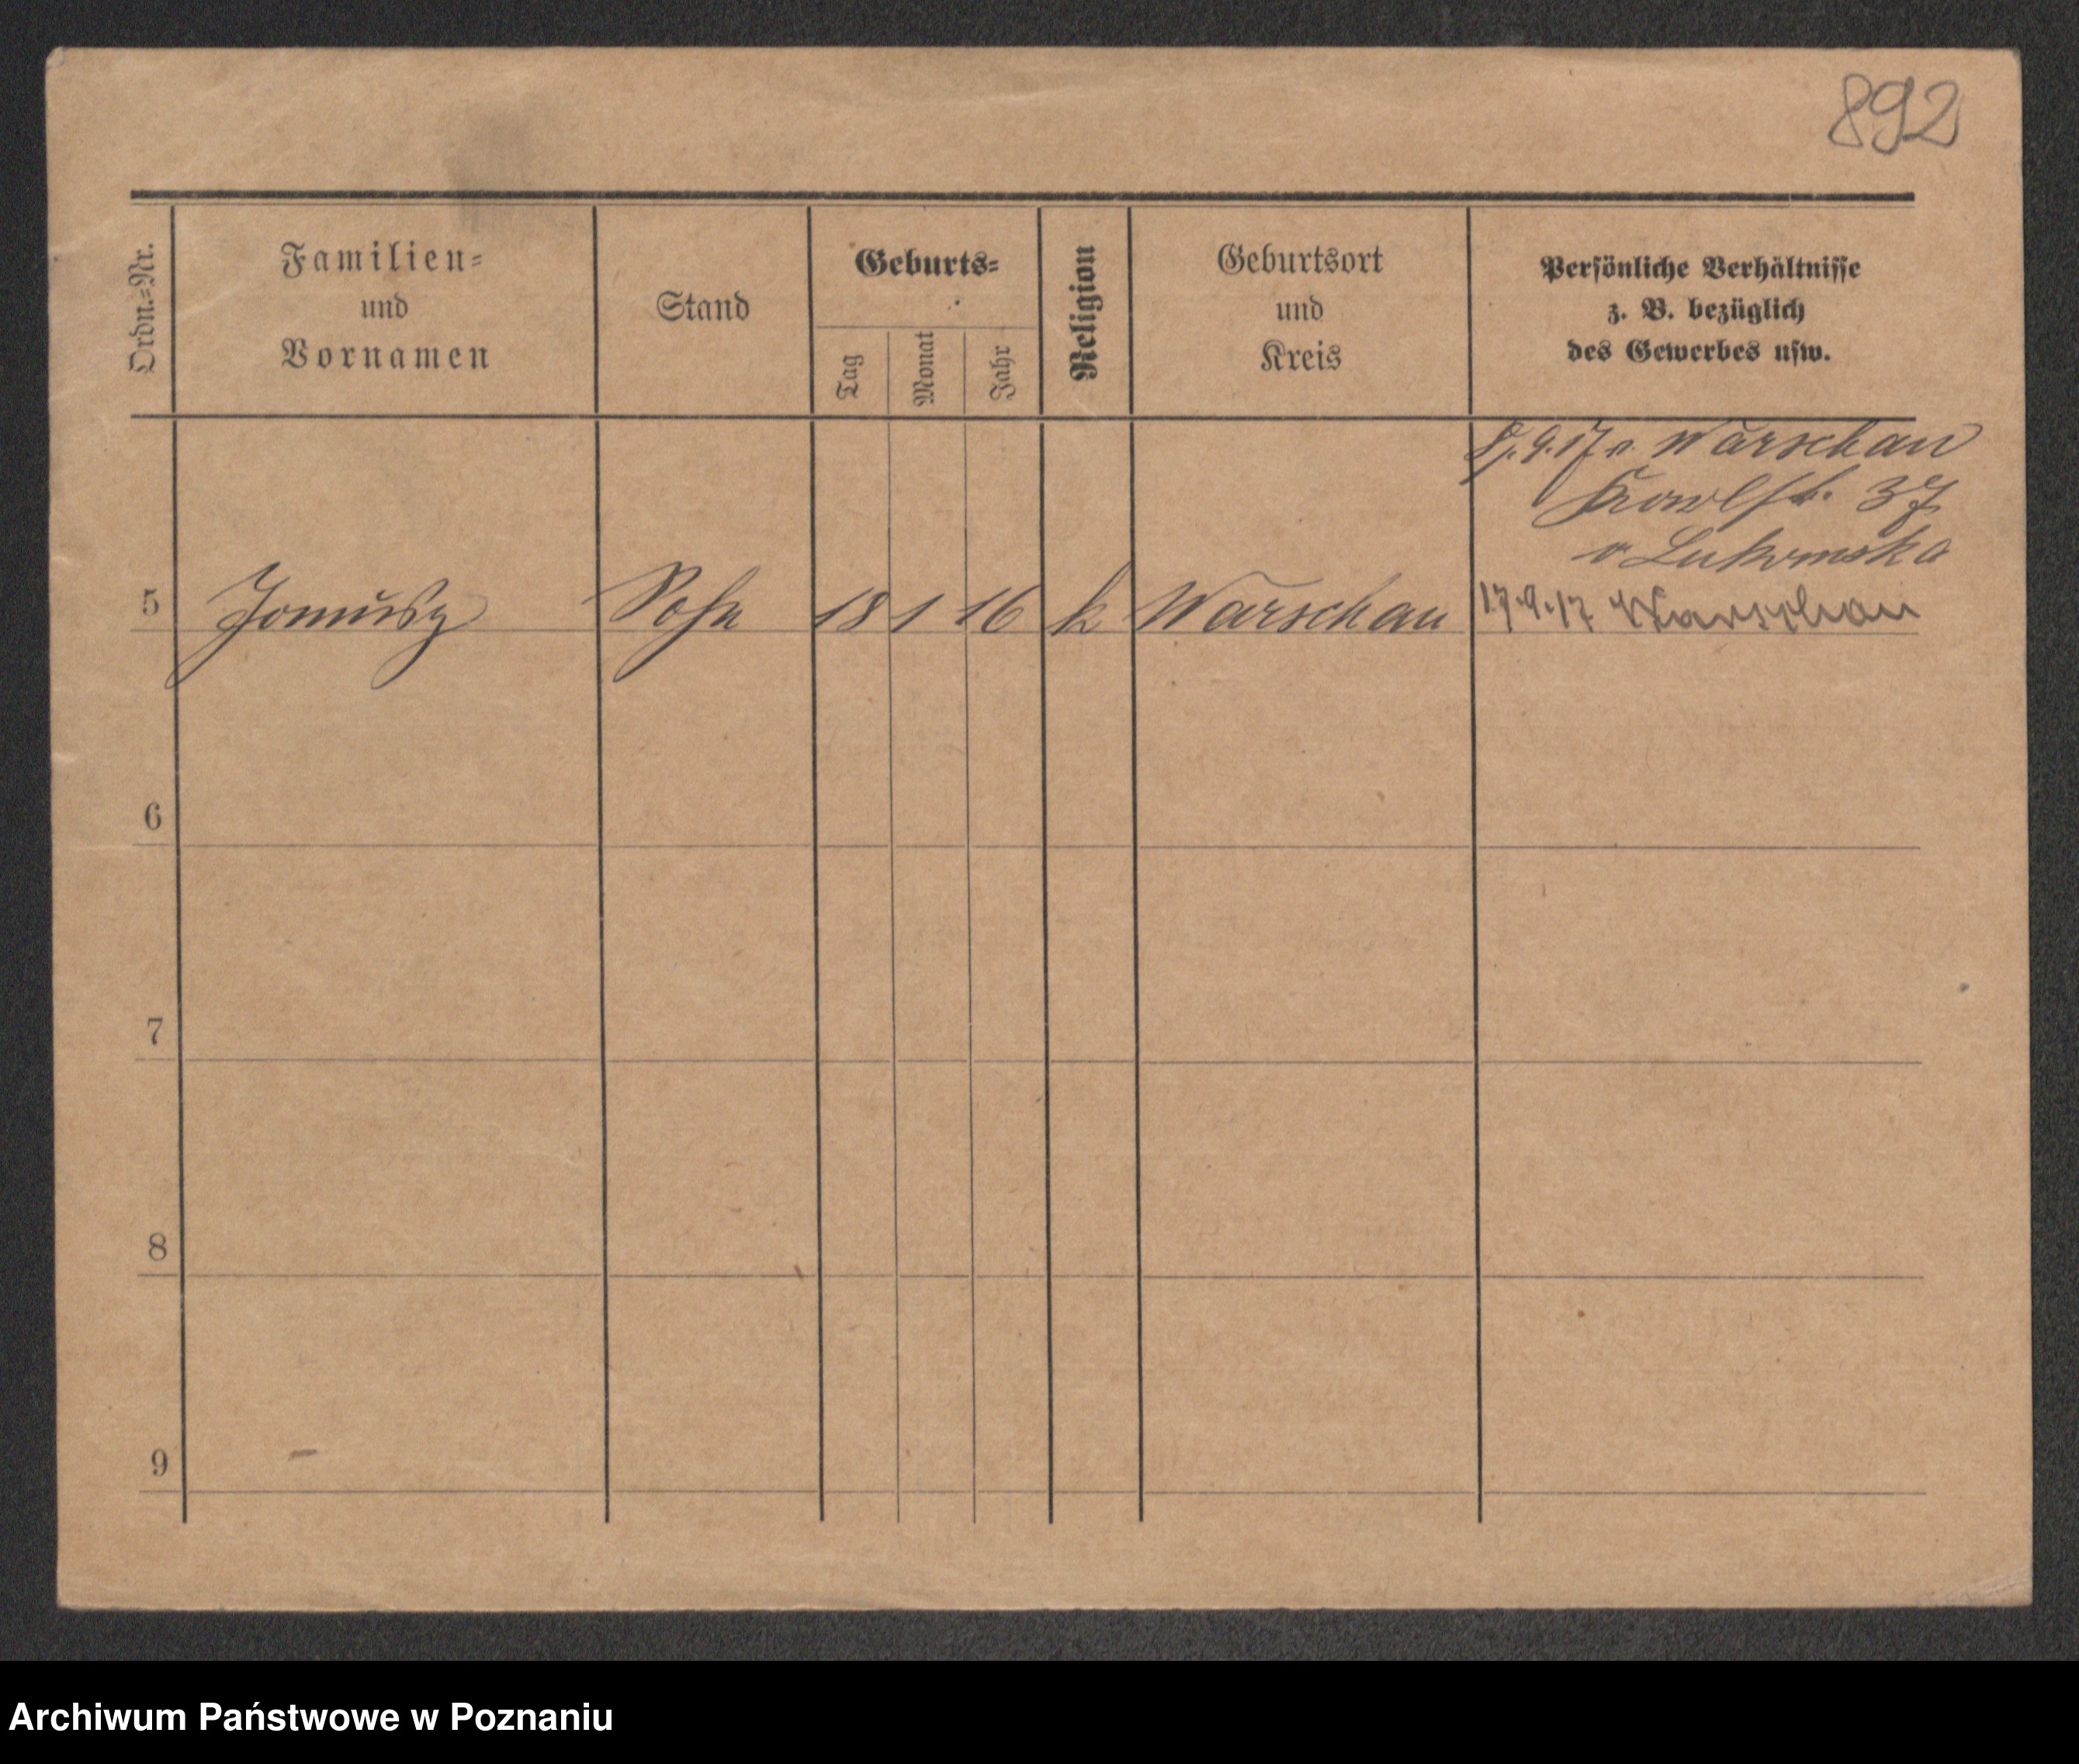 892
Ordn.=Nr.
Familien=
und
Vornamen
Stand
Geburts=
Tag
Monat
Jahr
Religion
Geburtsort
und
Kreis
Persönliche Verhältnisse
z. B. bezüglich
des Gewerbes usw.
8/.9.17 v. Warschau
37
v Lukomska
5 Janusz Sohn 18 1 16 k Warschau 17.9.17 Warschau
6
7
8
9
Archiwum Państwowe w Poznaniu